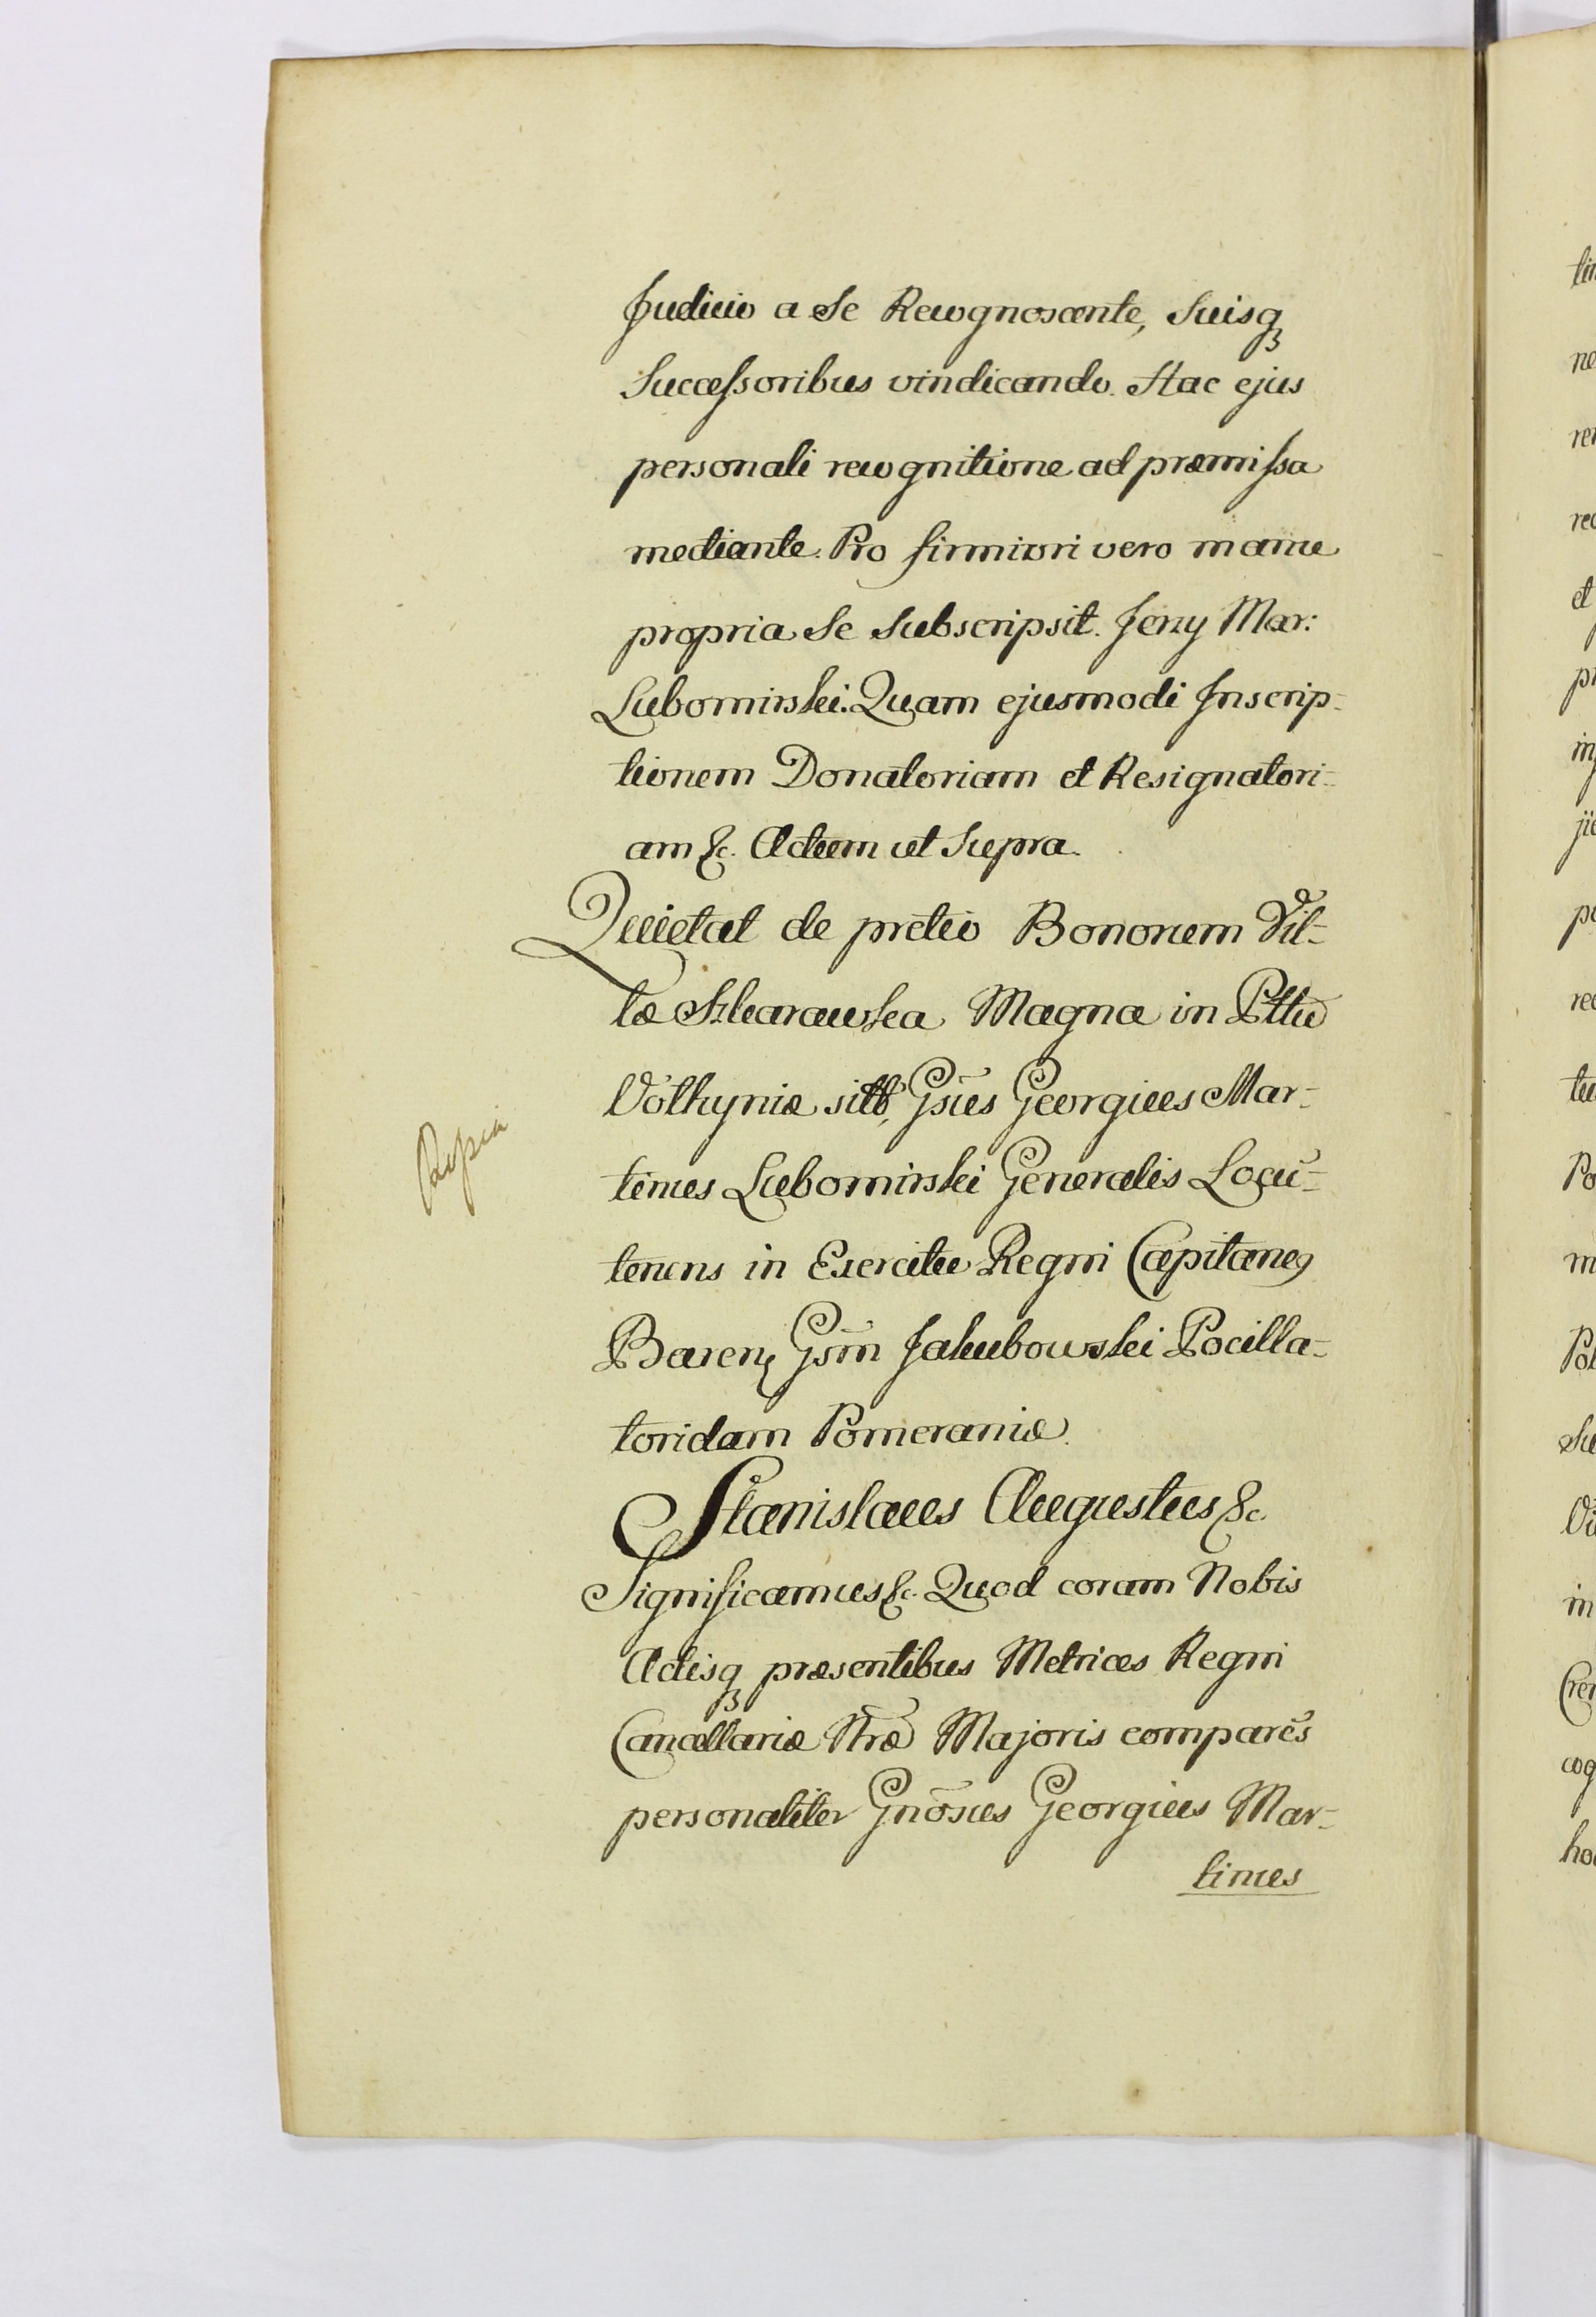 Judicio a Se Recognoscente, Suisq₃
Successoribus vindicando. Hac ejus
personali recognitione ad præmissa
mediante. Pro firmiori vero manu
propria Se Subscripsit. Jerzy Mar:
Lubomirski. Quam ejusmodi Inscrip-
tionem Donatoriam et Resignatori-
am &c. Actum ut Supra.
Quietat de pretio Bonorum Vil-
læ Magna in Pttu
Volhyniæ sitt, Gsus Georgius Mar-
tinus Lubomirski Generalis Locu-
tenens in Exercitu Regni Capitaneg
Baren, Gsm Jakubowski Pocilla-
toridam Pomeraniæ.
Stanislaus Augustus &c.
Significamus &c. Quod coram Nobis
Actisq₃ præsentibus Metrices Regni
Cancellariæ Nræ Majoris comparēs
personaliter Gnōsus Georgius Mar-
tinus